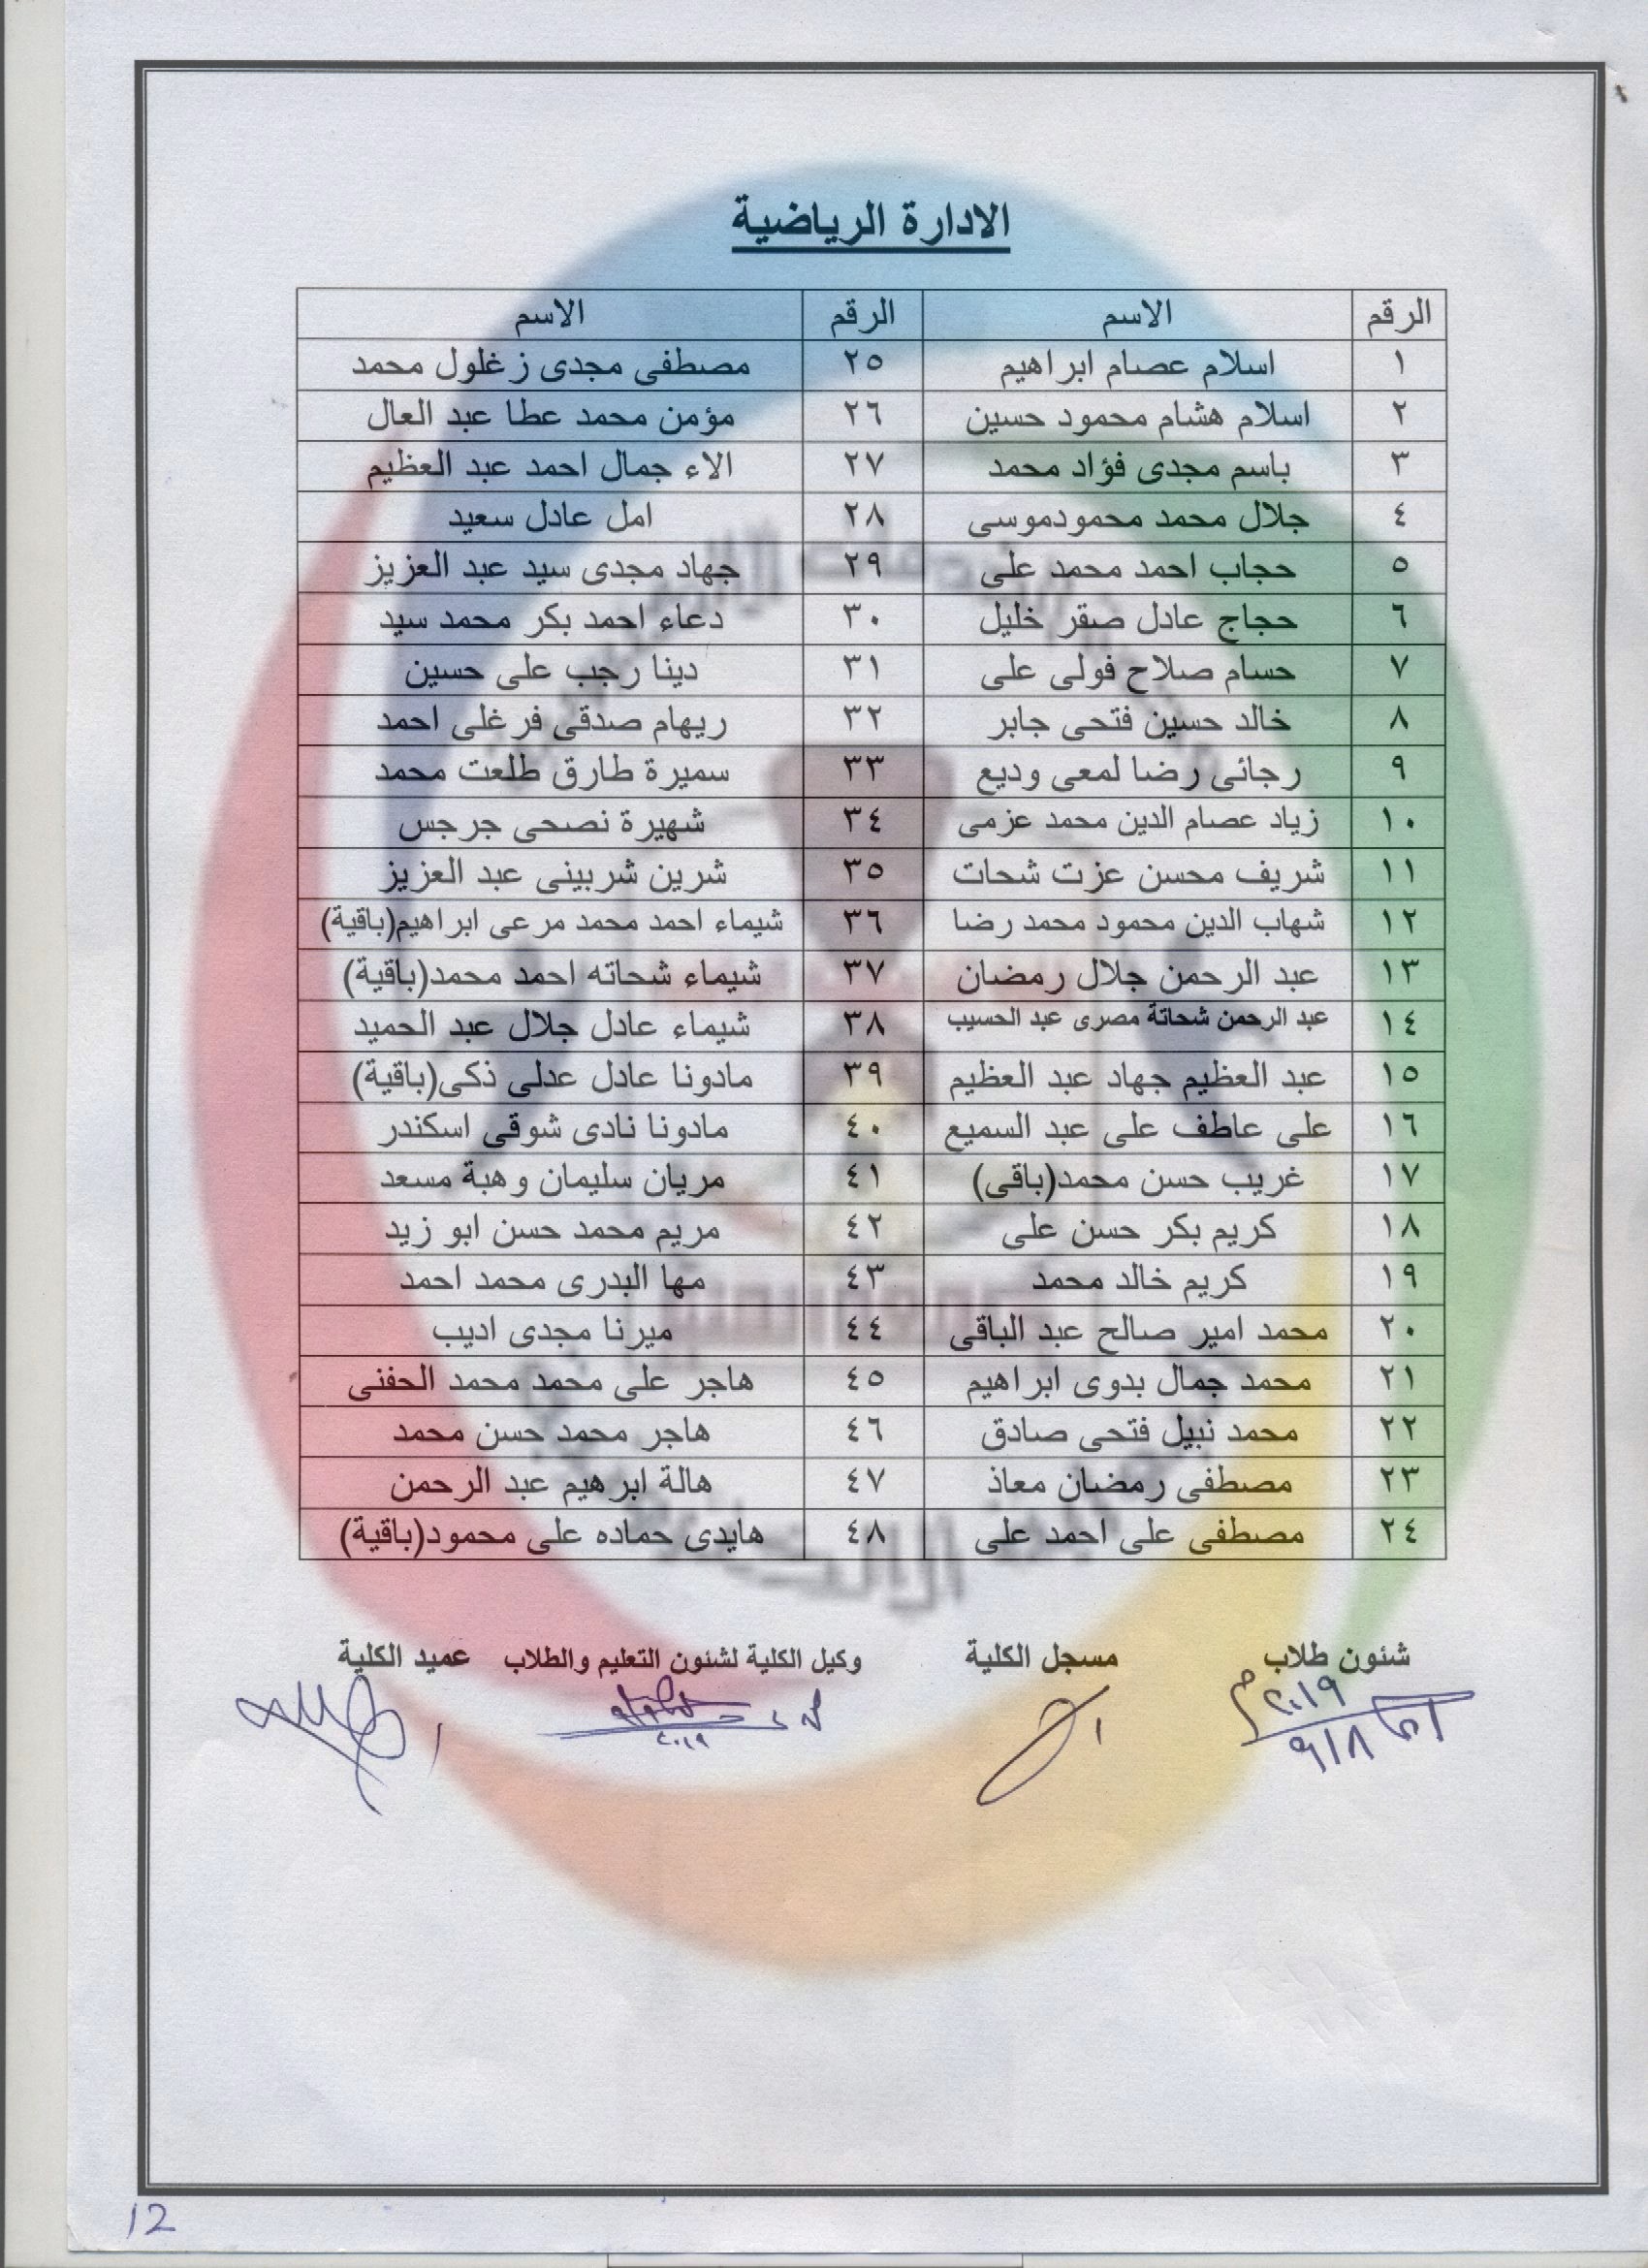 الادارة الرياضية
الرقم الاسم الرقم الاسم
١ اسلام عصام ابراهيم ٢٥ مصطفى مجدى زغلول محمد
٢ اسلام هشام محمود حسين ٢٦ مؤمن محمد عطا عبد العال
٣ باسم مجدى فؤاد محمد ٢٧ الاء جمال احمد عبد العظيم
٤ جلال محمد محمودموسى ٢٨ امل عادل سعيد
٥ حجاب احمد محمد على ٢٩ جهاد مجدى سيد عبد العزيز
٦ حجاج عادل صقر خليل ٣٠ دعاء احمد بكر محمد سيد
٧ حسام صلاح فولى على ٣١ دينا رجب على حسين
٨ خالد حسين فتحى جابر ٣٢ ريهام صدقى فرغلى احمد
٩ رجائى رضا لمعى وديع ٣٣ سميرة طارق طلعت محمد
١٠ زياد عصام الدين محمد عزمى ٣٤ شهيرة نصحى جرجس
١١ شريف محسن عزت شحات ٣٥ شرين شربينى عبد العزيز
١٢ شهاب الدين محمود محمد رضا ٣٦ شيماء احمد محمد مرعى ابراهيم(باقية)
١٣ عبد الرحمن جلال رمضان ٣٧ شيماء شحاته احمد محمد(باقية)
١٤ عبد الرحمن شحاتة مصرى عبد الحسيب ٣٨ شيماء عادل جلال عبد الحميد
١٥ عبد العظيم جهاد عبد العظيم ٣٩ مادونا عادل عدلى ذكى(باقية)
١٦ على عاطف على عبد السميع ٤٠ مادونا نادى شوقى اسكندر
١٧ غريب حسن محمد(باقى) ٤١ مريان سليمان وهبة مسعد
١٨ كريم بكر حسن على ٤٢ مريم محمد حسن ابو زيد
١٩ كريم خالد محمد ٤٣ مها البدرى محمد احمد
٢٠ محمد امير صالح عبد الباقى ٤٤ ميرنا مجدى اديب
٢١ محمد جمال بدوى ابراهيم ٤٥ هاجر على محمد محمد الحفنى
٢٢ محمد نبيل فتحى صادق ٤٦ هاجر محمد حسن محمد
٢٣ مصطفى رمضان معاذ ٤٧ هالة ابرهيم عبد الرحمن
٢٤ مصطفى على احمد على ٤٨ هايدى حماده على محمود(باقية)
شئون طلاب مسجل الكلية وكيل الكلية لشئون التعليم والطلاب عميد الكلية
٢٠١٩
٩/٨
12